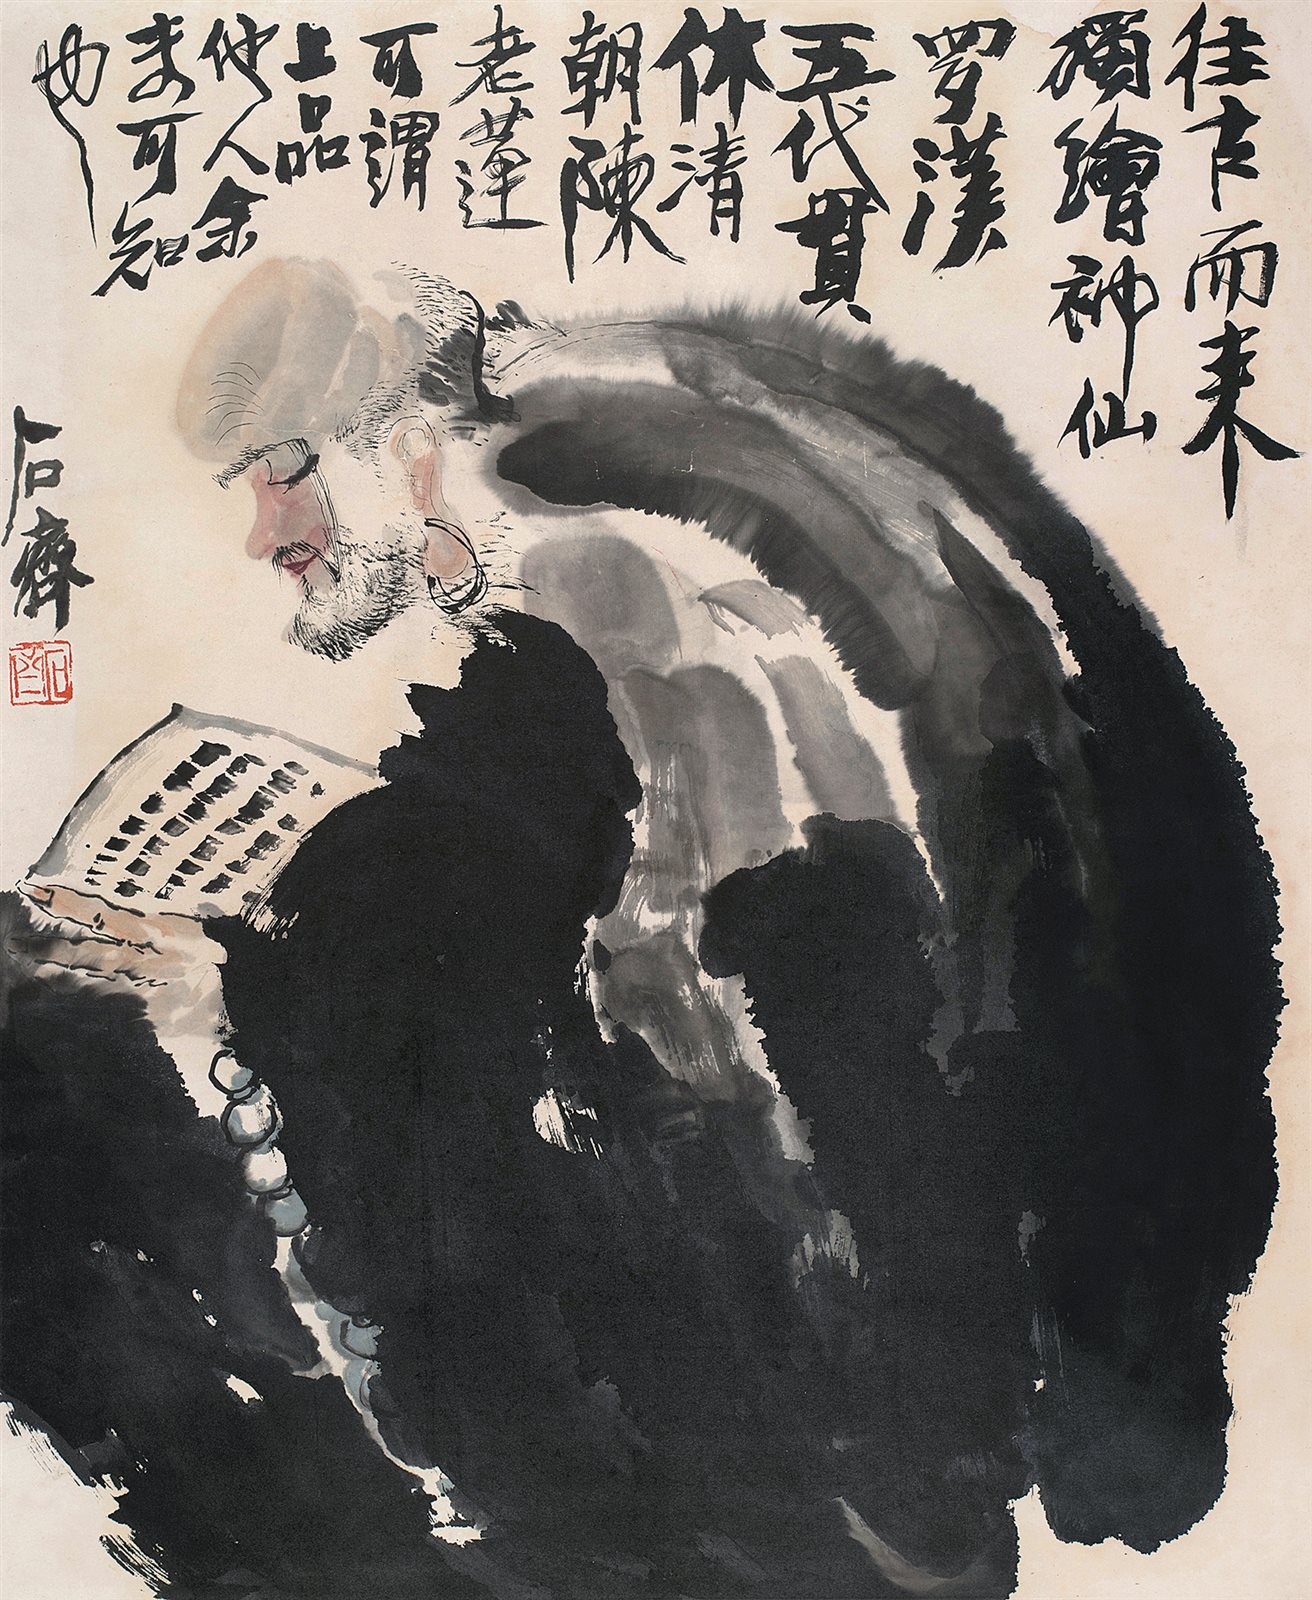 往古而来
獨繪神仙
罗漢
五代貫
休清
朝陳
老蓮
可謂
上品
他人余
未可知
也
石齊